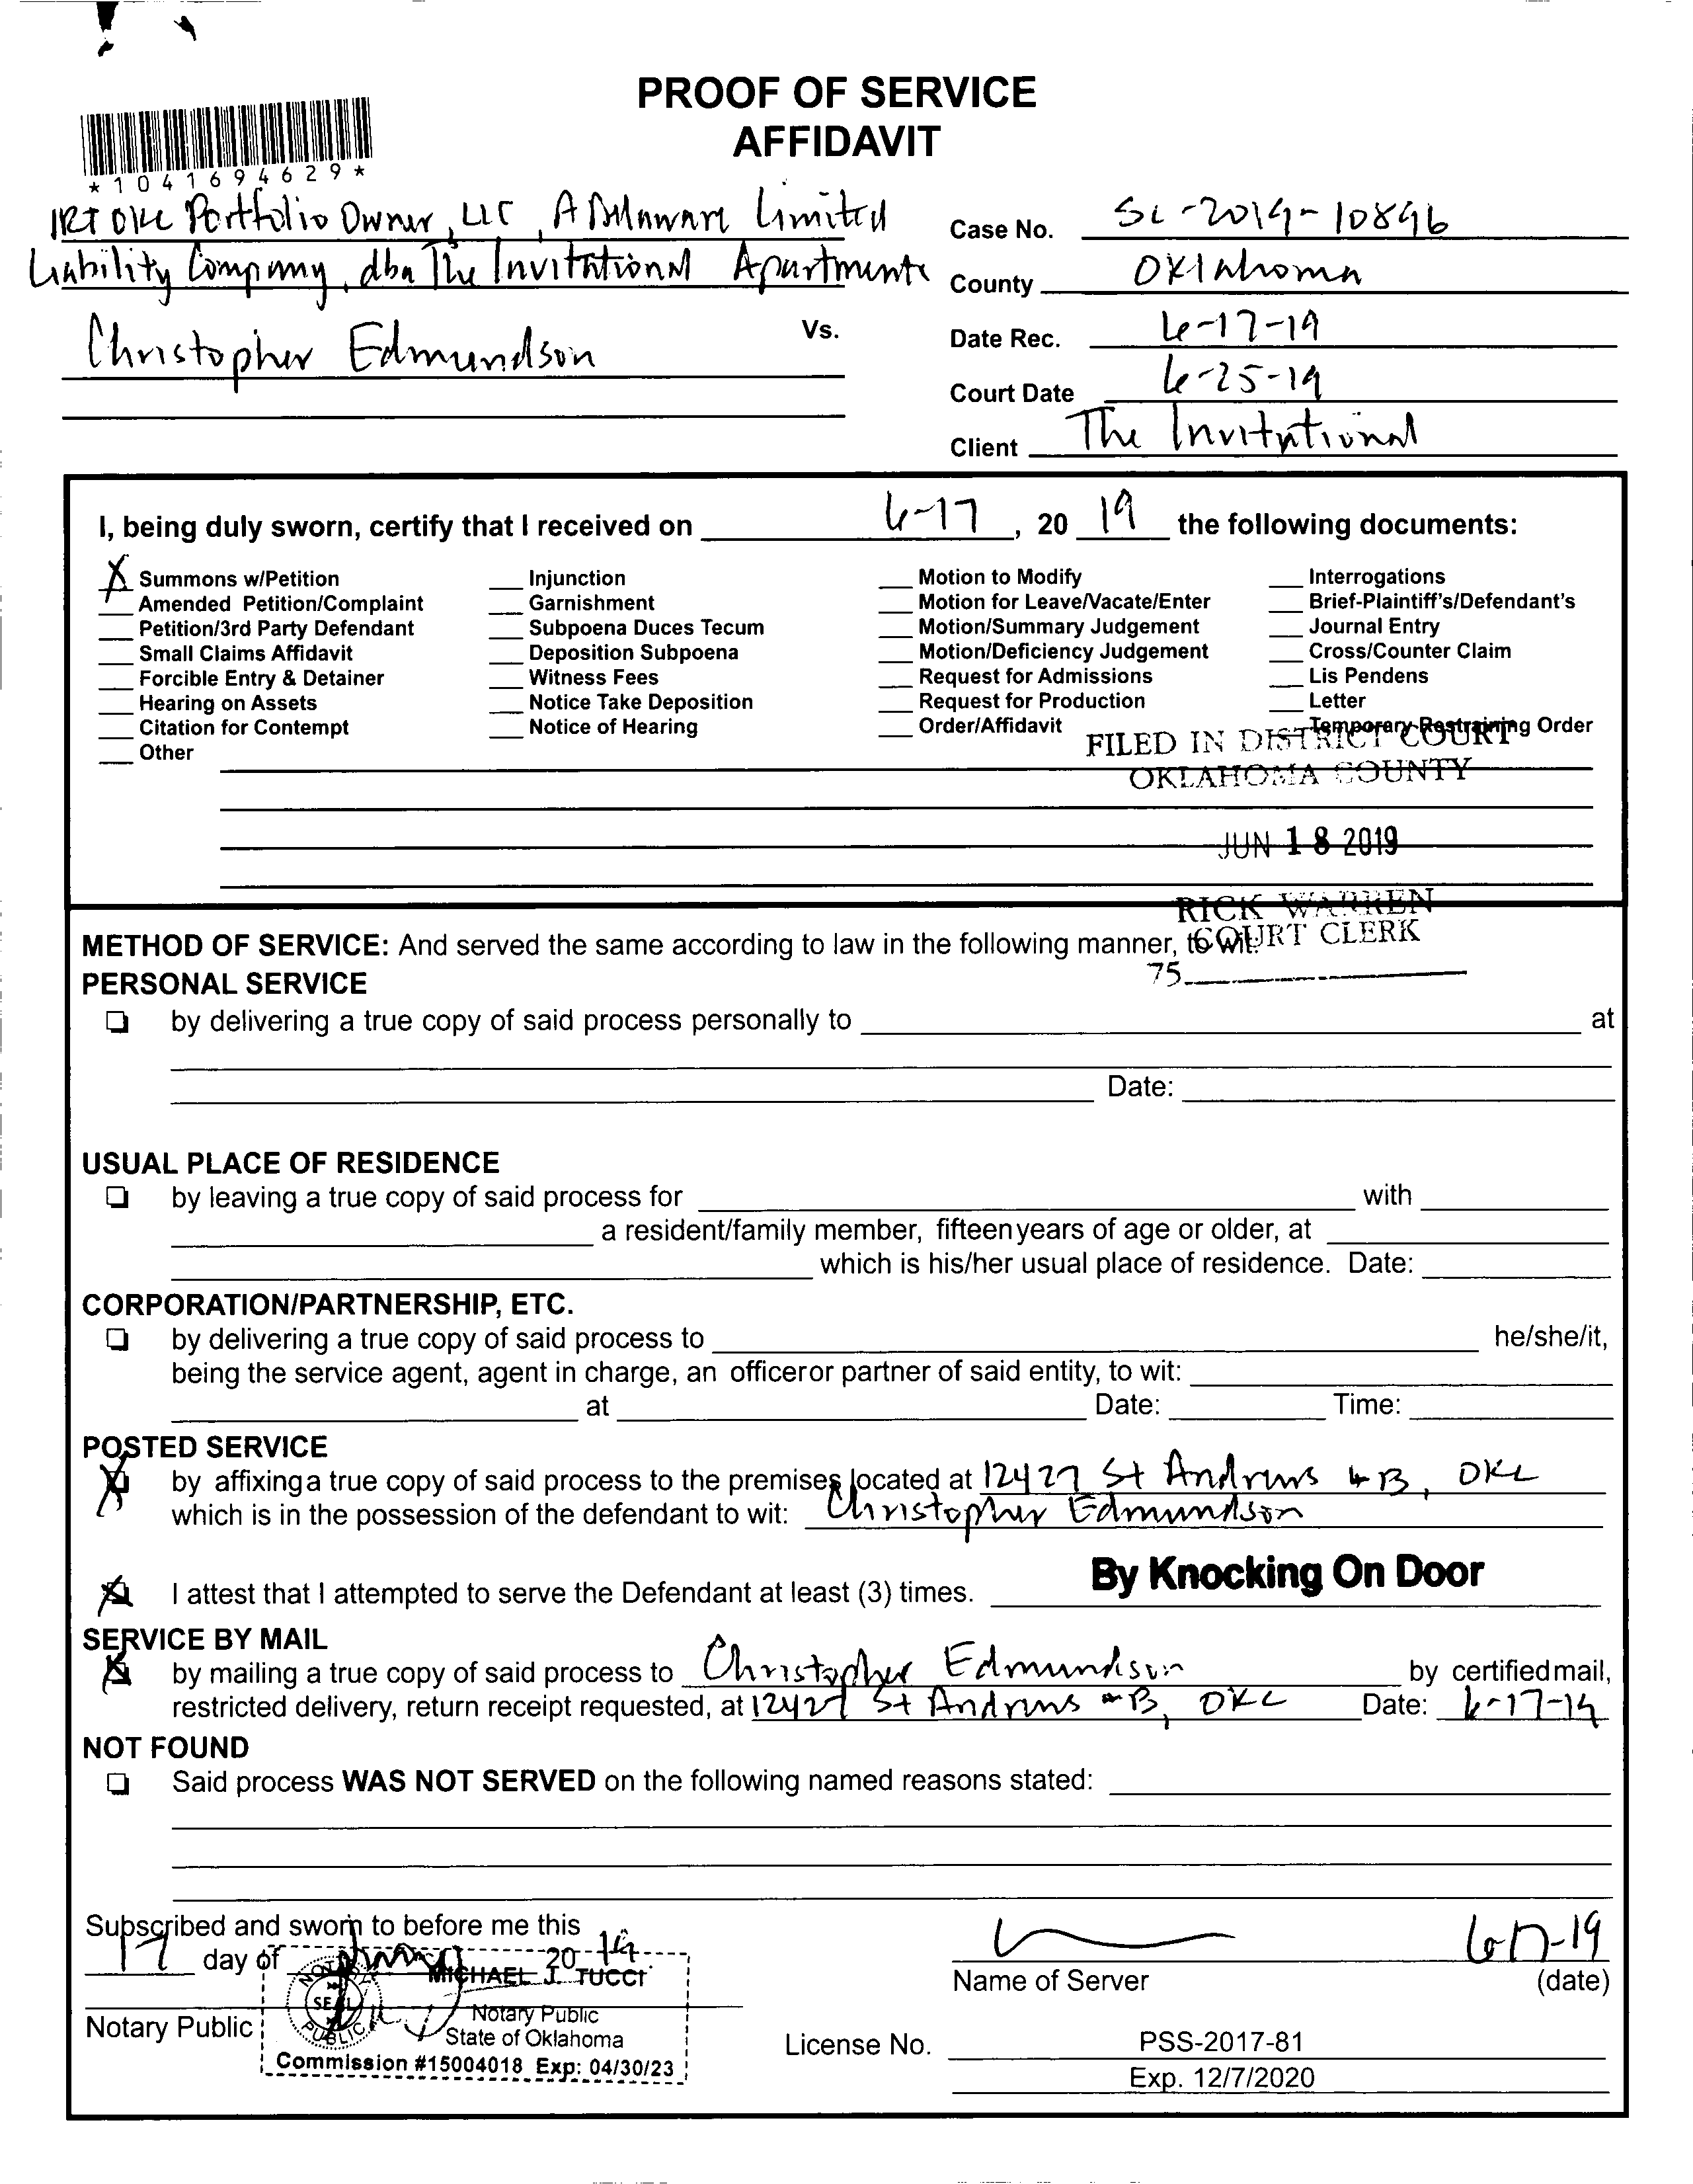 PROOF OF SERVICE
AFFIDAVIT
*1041694629*
IRT OKC Portfolio Owner, LLC, A Delaware Limited
Liability Company, dba The Invitational Apartments
Christopher Edmundson
Vs.
Case No. SC-2019-10896
County Oklahoma
Date Rec. 6-17-19
Court Date 6-25-19
Client The Invitational
I, being duly sworn, certify that I received on 6-17, 20 19 the following documents:
X Summons w/Petition
Amended Petition/Complaint
Petition/3rd Party Defendant
Small Claims Affidavit
Forcible Entry & Detainer
Hearing on Assets
Citation for Contempt
Other
Injunction
Garnishment
Subpoena Duces Tecum
Deposition Subpoena
Witness Fees
Notice Take Deposition
Notice of Hearing
Motion to Modify
Motion for Leave/Vacate/Enter
Motion/Summary Judgement
Motion/Deficiency Judgement
Request for Admissions
Request for Production
Order/Affidavit
Interrogations
Brief-Plaintiff's/Defendant's
Journal Entry
Cross/Counter Claim
Lis Pendens
Letter
Temporary Restraining Order
FILED IN DISTRICT COURT
OKLAHOMA COUNTY
JUN 18 2019
RICK WARREN
COURT CLERK
75
METHOD OF SERVICE: And served the same according to law in the following manner, to wit:
PERSONAL SERVICE
by delivering a true copy of said process personally to at
Date:
USUAL PLACE OF RESIDENCE
by leaving a true copy of said process for with
a resident/family member, fifteen years of age or older, at
which is his/her usual place of residence. Date:
CORPORATION/PARTNERSHIP, ETC.
by delivering a true copy of said process to he/she/it,
being the service agent, agent in charge, an officer or partner of said entity, to wit:
at Date: Time:
POSTED SERVICE
X by affixing a true copy of said process to the premises located at 12427 St Andrews #B, OKC
which is in the possession of the defendant to wit: Christopher Edmundson
X I attest that I attempted to serve the Defendant at least (3) times. By Knocking On Door
SERVICE BY MAIL
X by mailing a true copy of said process to Christopher Edmundson by certified mail,
restricted delivery, return receipt requested, at 12427 St Andrews #B, OKC Date: 6-17-19
NOT FOUND
Said process WAS NOT SERVED on the following named reasons stated:
Subscribed and sworn to before me this
17 day of 20 19.
Notary Public
NOTARY PUBLIC
SEAL
MICHAEL J. TUCCI
Notary Public
State of Oklahoma
Commission #15004018 Exp: 04/30/23
6-17-19
Name of Server (date)
License No. PSS-2017-81
Exp. 12/7/2020